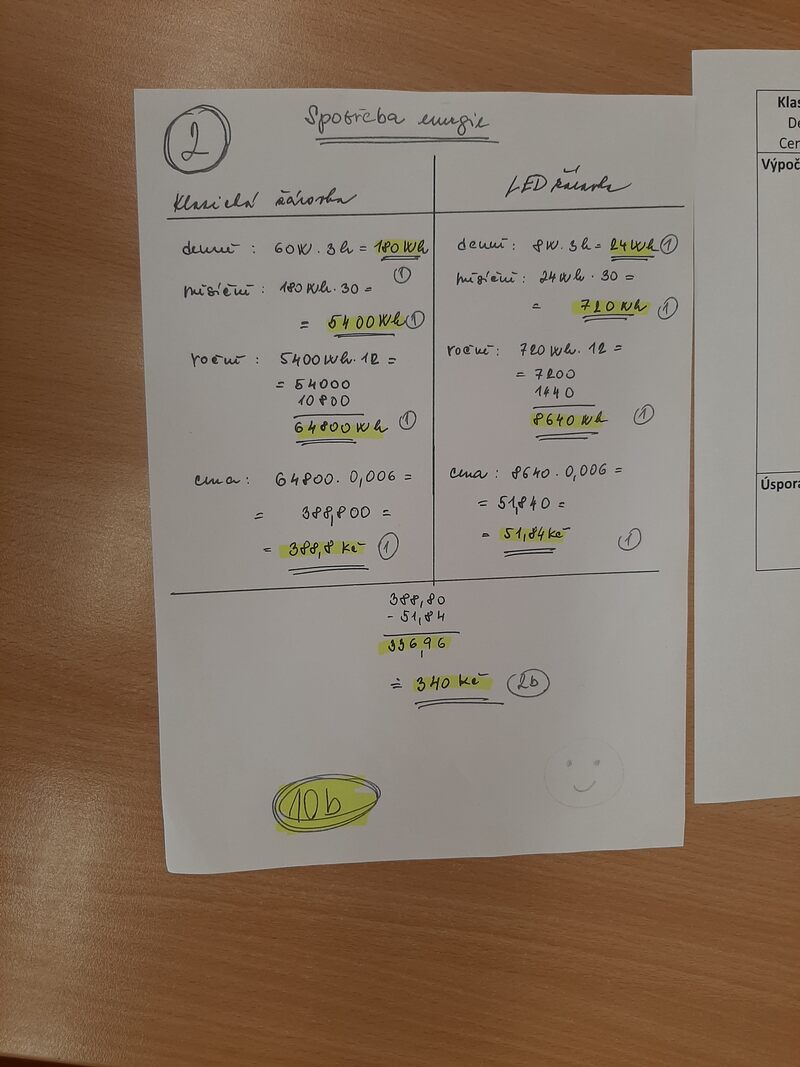 2
Spotřeba energie
Klasická žárovka
denně : 60W . 3h = 180Wh
1
měsíční : 180Wh . 30 =
= 5400Wh 1
roční : 5400Wh . 12 =
= 54000
10800
64800Wh 1
cena : 64800 . 0,006 =
= 388,800 =
= 388,8 Kč 1
LED žárovka
denní : 8W . 3h = 24Wh 1
měsíční : 24Wh . 30 =
= 720Wh 1
roční : 720Wh . 12 =
= 7200
1440
8640Wh 1
cena : 8640 . 0,006 =
= 51,840 =
= 51,84Kč 1
388,80
- 51,84
336,96
≐ 340 Kč 2b
10b
Klas
De
Cen
Výpoč
Úspora